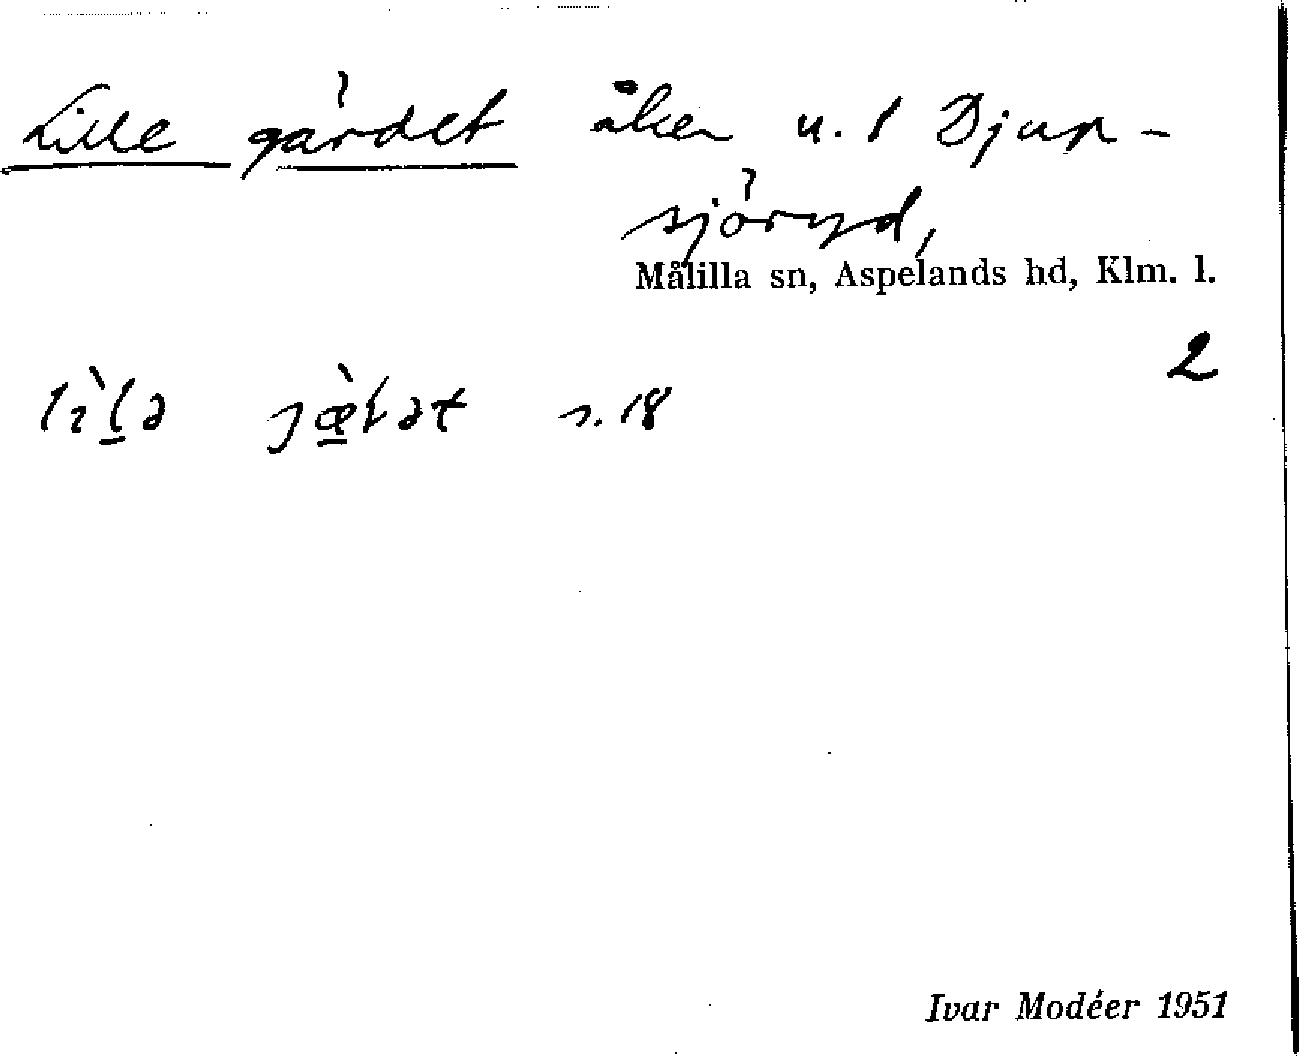 Lille gärdet åker u. 1 Djup-
sjöryd,
Målilla sn, Aspelands hd, Klm. l.
2
s. 18
Ivar Modéer 1951